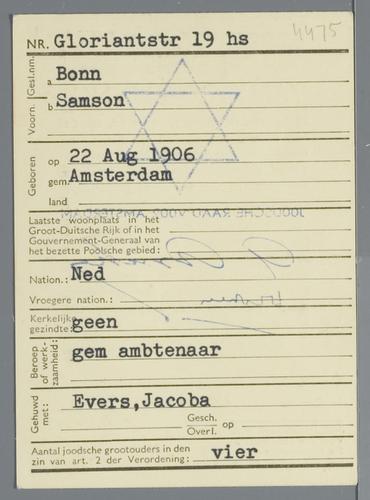 4475
NR. Gloriantstr 19 hs
Gesl.nm. a Bonn
Voorn. b Samson
Geboren op 22 Aug 1906
gem. Amsterdam
land
Laatste woonplaats in het
Groot-Duitsche Rijk of in het
Gouvernement-Generaal van
het bezette Poolsche gebied:
Nation.: Ned
Vroegere nation.:
Kerkelijke
gezindte: geen
Beroep of werkzaamheid: gem ambtenaar
Gehuwd met: Evers,Jacoba
Gesch.
Overl. op
Aantal joodsche grootouders in den
zin van art. 2 der Verordening: vier
JOODSCHE RAAD VOOR AMSTERDAM